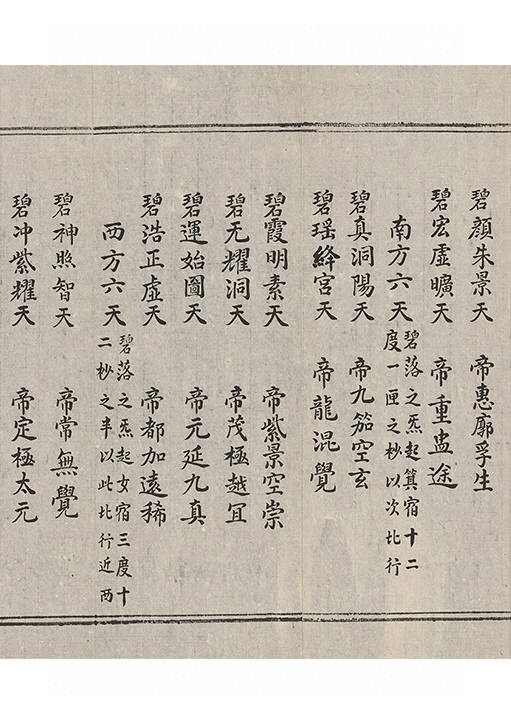 碧顏朱景天　帝惠廓孚生
碧宏虛曠天　帝重盅途
南方六天碧落之炁起箕宿十二
度一匣之杪以次北行
碧真洞陽天　帝九笳空玄
碧瑶絳宮天　帝龍混覺
碧霞明素天　帝紫景空崇
碧无耀洞天　帝茂極越冝
碧運始圖天　帝元延九真
碧浩正虛天　帝都加遠稀
西方六天碧落之炁起女宿三度十
二杪之半以此北行近西
碧神照智天　帝常無覺
碧冲紫耀天　帝定極太元